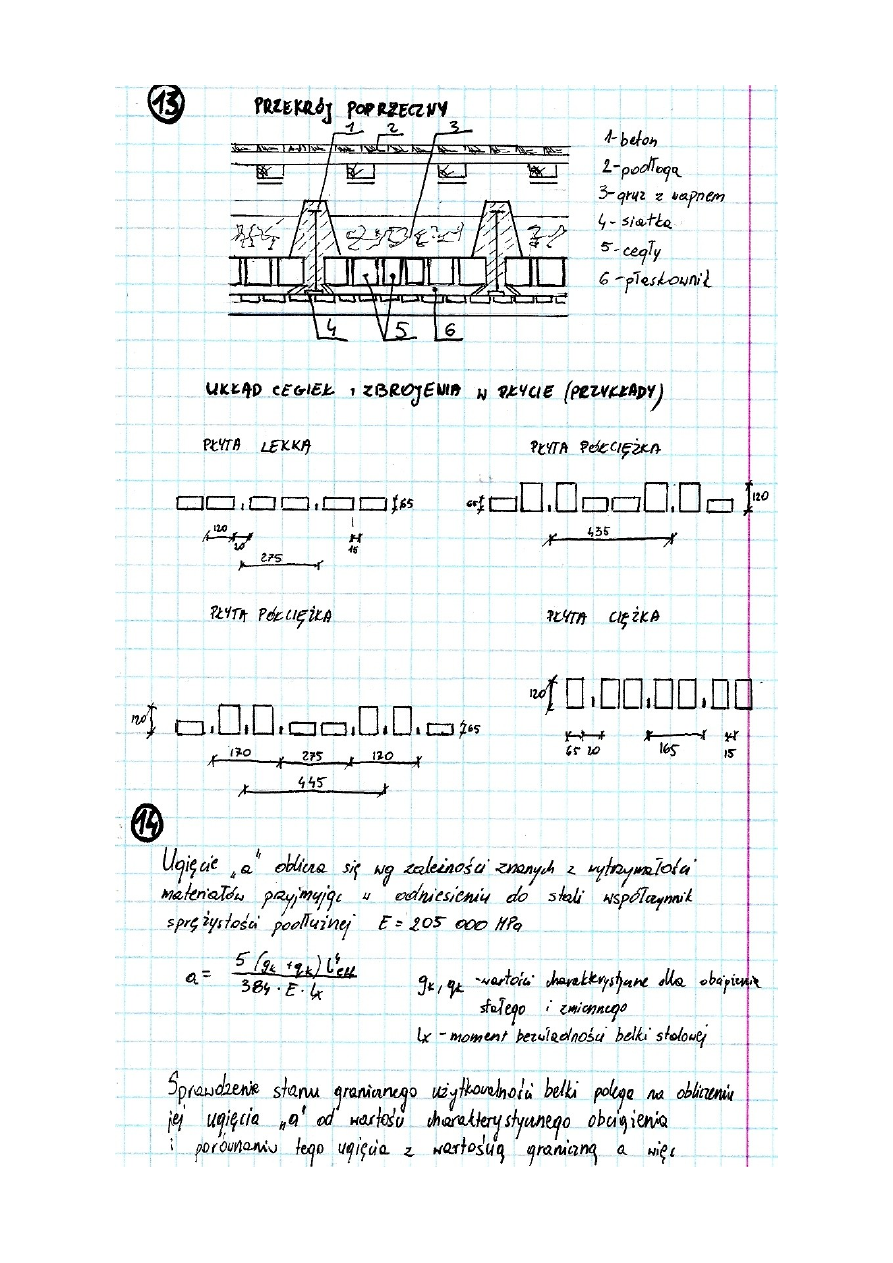 13
PRZEKRÓJ POPRZECZNY
1 2 3
1-beton
2-podłoga
3-gruz z wapnem
4-siatka
5-cegły
6-płaskownik
4 5 6
UKŁAD CEGIEŁ I ZBROJENIA W PŁYCIE (PRZYKŁADY)
PŁYTA LEKKA
PŁYTA PÓŁCIĘŻKA
65
65
120
120
20
15
275
435
PŁYTA PÓŁCIĘŻKA
PŁYTA CIĘŻKA
120
65
120
170 275 170
445
65 20 165 15
14
Ugięcie „a" oblicza się wg zależności znanych z wytrzymałości
materiałów przyjmując w odniesieniu do stali współczynnik
sprężystości podłużnej E = 205 000 MPa
a = 5 (gk + qk) l⁴eff / 384 · E · Ix
gk, qk - wartości charakterystyczne dla obciążenia
stałego i zmiennego
Ix - moment bezwładności belki stalowej
Sprawdzenie stanu granicznego użytkowalności belki polega na obliczeniu
jej ugięcia „a" od wartości charakterystycznego obciążenia
i porównaniu tego ugięcia z wartością graniczną a więc